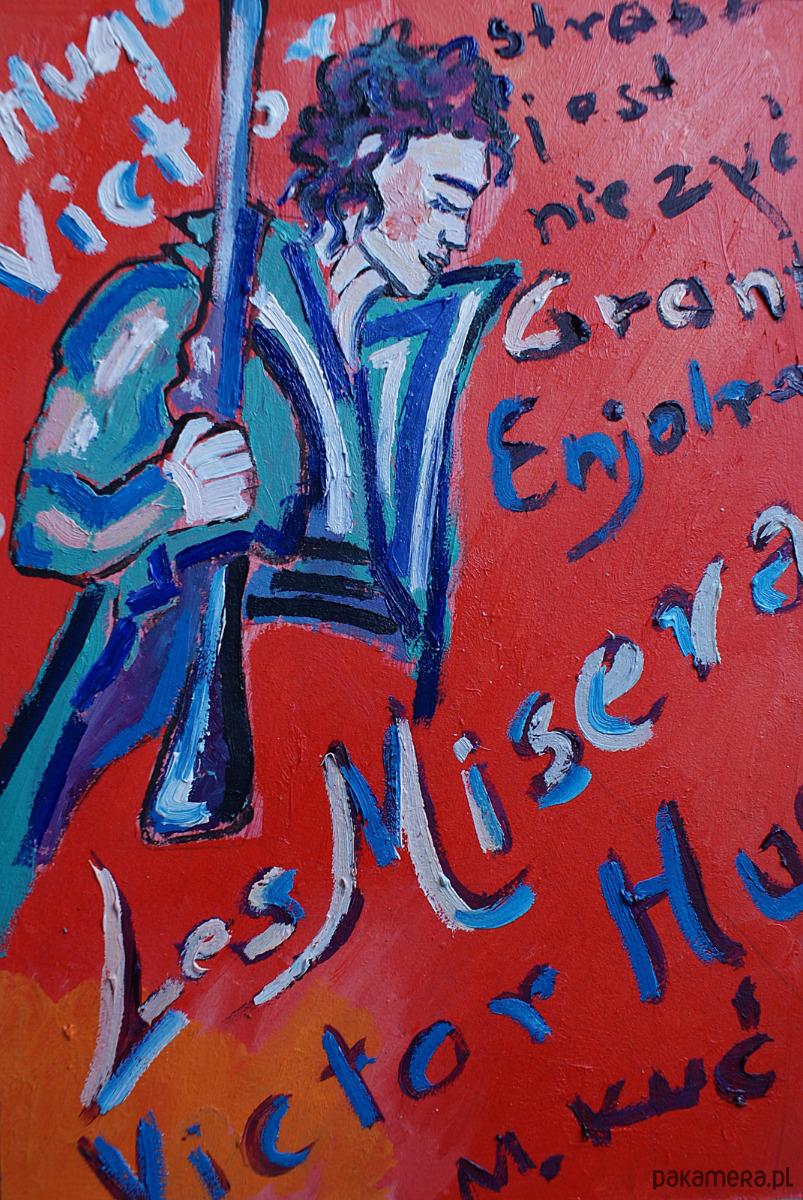 Hugo
Victor
stras
jest
nie ży
Grant
Enjolra
Les Misera
Victor Hu
M. Kuć
pakamera.pl